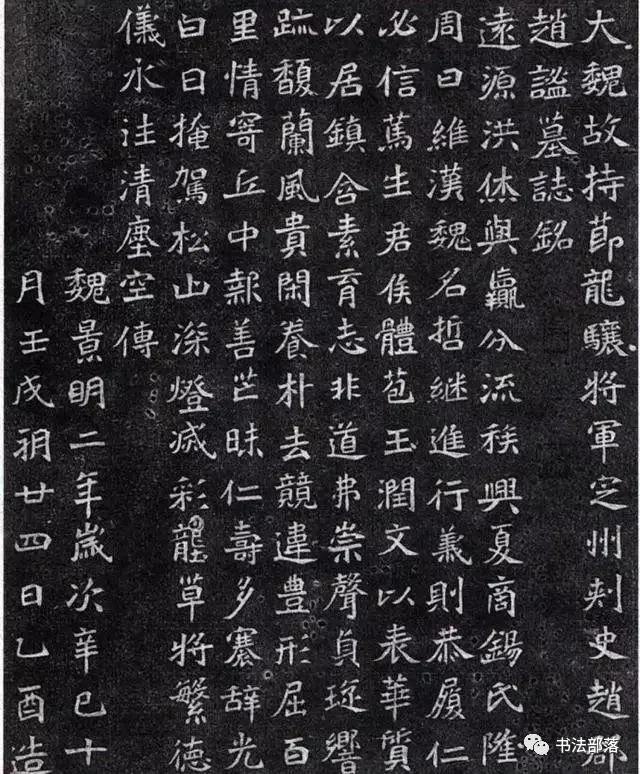 大魏故持節龍驤將軍定州刺史趙郡
趙謐墓誌銘
遠源洪休與嬴分流族興夏商錫氏隆
周曰維漢魏名哲継進行義則恭履仁
必信篤生君侯體苞玉潤文以表華質
以居鎮含素育志非道弗崇聲貞琁響
跡馥蘭風貴閑養朴去競違豊形屈百
里情寄丘中報善芒昧仁壽多褰辞光
白日掩駕松山深燈戚彩壠草將繁德
儀永往清塵空傳
魏景明二年歲次辛巳十
月壬戌朔廿四日乙酉造
书法部落